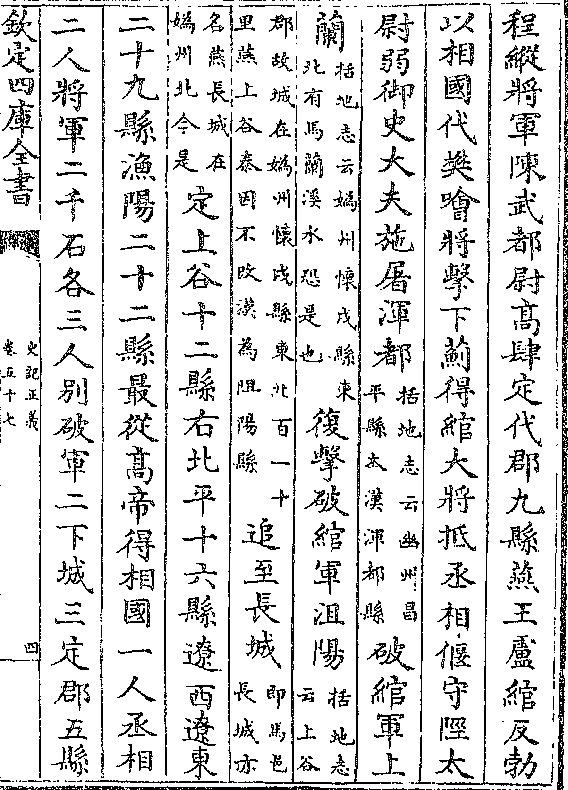 程縱將軍陳武都尉髙肆定代郡九縣燕王盧綰反勃
以相國代樊噲將擊下薊得綰大將抵丞相偃守陘太
尉弱御史大夫施屠渾都括地志云幽州昌平縣本漢渾都縣破綰軍上
蘭括地志云媯州懷戎縣東北有馬蘭溪水恐是也復擊破綰軍沮陽括地志云上谷
郡故城在媯州懷戎縣東北百一十里燕上谷秦因不改漢為沮陽縣追至長城即馬邑長城亦
名燕長城在媯州北今是定上谷十二縣右北平十六縣遼西遼東
二十九縣漁陽二十二縣最從髙帝得相國一人丞相
二人將軍二千石各三人別破軍二下城三定郡五縣
欽定四庫全書
史記正義
卷五十七
四